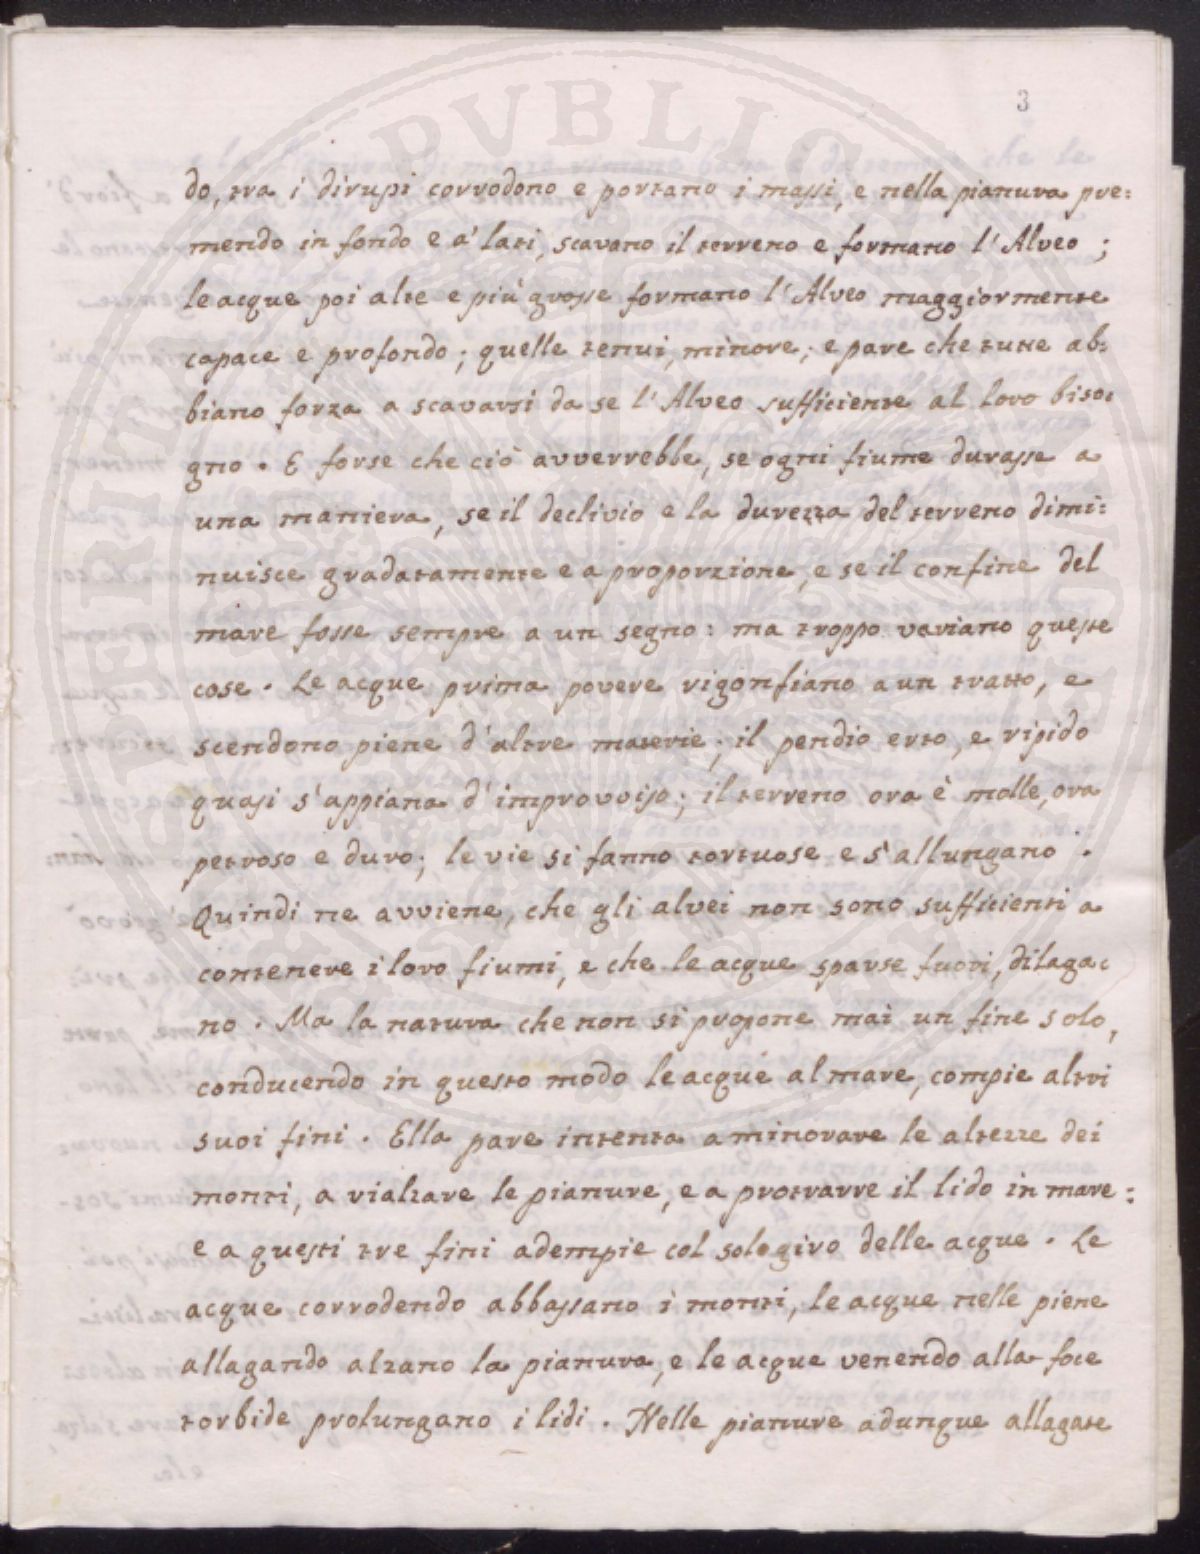 3
do, tra i dirupi corrodono e portano i massi, e nella pianura pre:
mendo in fondo e a' lati, scavano il terreno e formano l'Alveo ;
le acque poi alte e più grosse formano l'Alveo maggiormente
capace e profondo; quelle tenui, minore; e pare che tutte ab:
biano forza a scavarsi da se l'Alveo sufficiente al loro biso:
gno . E forse che ciò avverrebbe, se ogni fiume durasse a
una maniera, se il declivio e la durezza del terreno dimi:
nuisce gradatamente e a proporzione, e se il confine del
mare fosse sempre a un segno: ma troppo variano queste
cose . Le acque prima povere rigonfiano a un tratto, e
scendono piene d'altre materie; il pendio erto, e ripido
quasi s'appiana d'improvviso; il terreno ora è molle, ora
petroso e duro; le vie si fanno tortuose e s'allungano .
Quindi ne avviene, che gli alvei non sono sufficienti a
contenere i loro fiumi, e che le acque sparse fuori, dilaga:
no . Ma la natura che non si propone mai un fine solo,
conducendo in questo modo le acque al mare, compie altri
suoi fini . Ella pare intenta a minorare le altezze dei
monti, a rialzare le pianure, e a protrarre il lido in mare:
e a questi tre fini adempie col solo giro delle acque . Le
acque corrodendo abbassano i monti, le acque nelle piene
allagando alzano la pianura, e le acque venendo alla foce
torbide prolungano i lidi . Nelle pianure adunque allagate